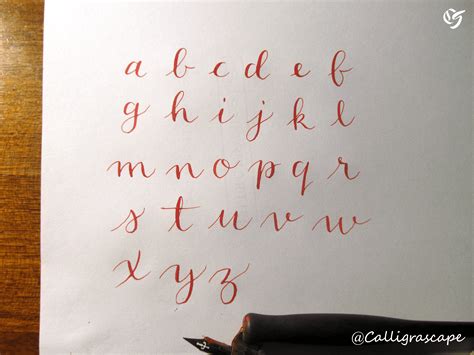 a b c d e f
g h i j k l
m n o p q r
s t u v w
x y z
@Calligrascape